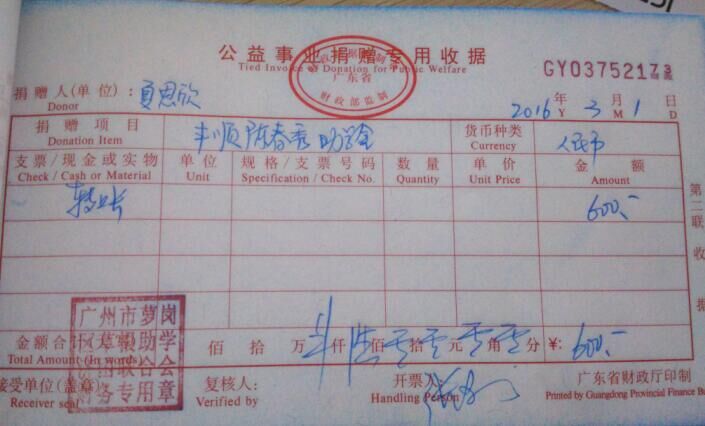 公益事业捐赠专用收据
Tied Invoice of Donation for Public Welfare
广东省
财政部监制
GY03752173
捐赠人(单位):
Donor
2016年3月1日
Y M D
捐赠项目 丰顺陈春秀助学金 货币种类 人民币
Donation Item Currency
支票/现金或实物 单位 规格/支票号码 数量 单价 金额
Check / Cash or Material Unit Specification / Check No. Quantity Unit Price Amount
转账 600.-
第二联 收据
广州市萝岗
金额合计 佰拾万 仟陆佰零拾零元零角零分 ¥: 600.-
Total Amount (In words)
接受单位(盖章) 复核人: 开票人:
Receiver seal Verified by Handling Person
财务专用章
广东省财政厅印制
Printed by Guangdong Provincial Finance